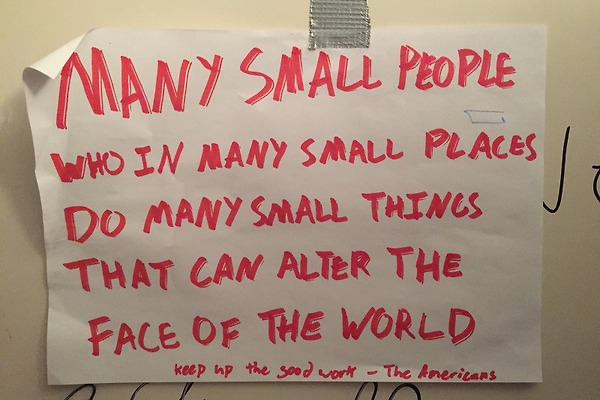 MANY SMALL PEOPLE
WHO IN MANY SMALL PLACES
DO MANY SMALL THINGS
THAT CAN ALTER THE
FACE OF THE WORLD
keep up the good work - The Americans